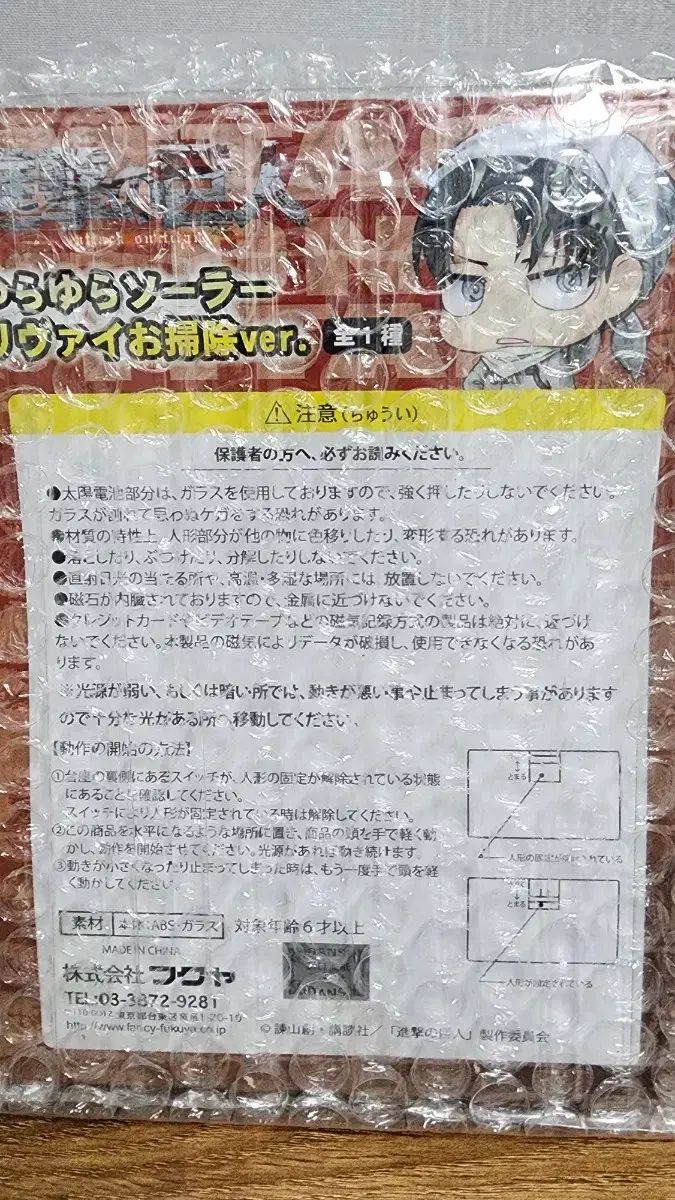 進撃の巨人
attack on titan
ゆらゆらソーラー
リヴァイお掃除ver. 全1種
⚠注意(ちゅうい)
保護者の方へ、必ずお読みください。
●太陽電池部分は、ガラスを使用しておりますので、強く押したりしないでください。
ガラスが割れて思わぬケガをする恐れがあります。
●材質の特性上、人形部分が他の物に色移りしたり、変形する恐れがあります。
●落としたり、ぶつけたり、分解したりしないでください。
●直射日光の当たる所や、高温・多湿な場所には、放置しないでください。
●磁石が内臓されておりますので、金属に近づけないでください。
●クレジットカードやビデオテープなどの磁気記録方式の製品は絶対に、近づけ
ないでください。本製品の磁気によりデータが破損し、使用できなくなる恐れがあ
ります。
※光源が弱い、もしくは暗い所では、動きが悪い事や止まってしまう事があります
ので十分な光がある所へ移動してください。
【動作の開始の方法】
①台座の裏側にあるスイッチが、人形の固定が解除されている状態
にあることを確認してください。
スイッチにより人形が固定されている時は解除してください。
②この商品を水平になるような場所に置き、商品の頭を手で軽く動
かし、動作を開始させてください。光源があれば動き続けます。
③動きが小さくなったり止まってしまった時は、もう一度手で頭を軽
く動かしてください。
↑
とまる
人形の固定が解除されている
↓
とまる
人形が固定されている
素材 本体:ABS・ガラス 対象年齢6才以上
MADE IN CHINA
株式会社フクヤ
TEL:03-3872-9281
http://www.fancy-fukuya.co.jp
©諫山創・講談社/「進撃の巨人」製作委員会